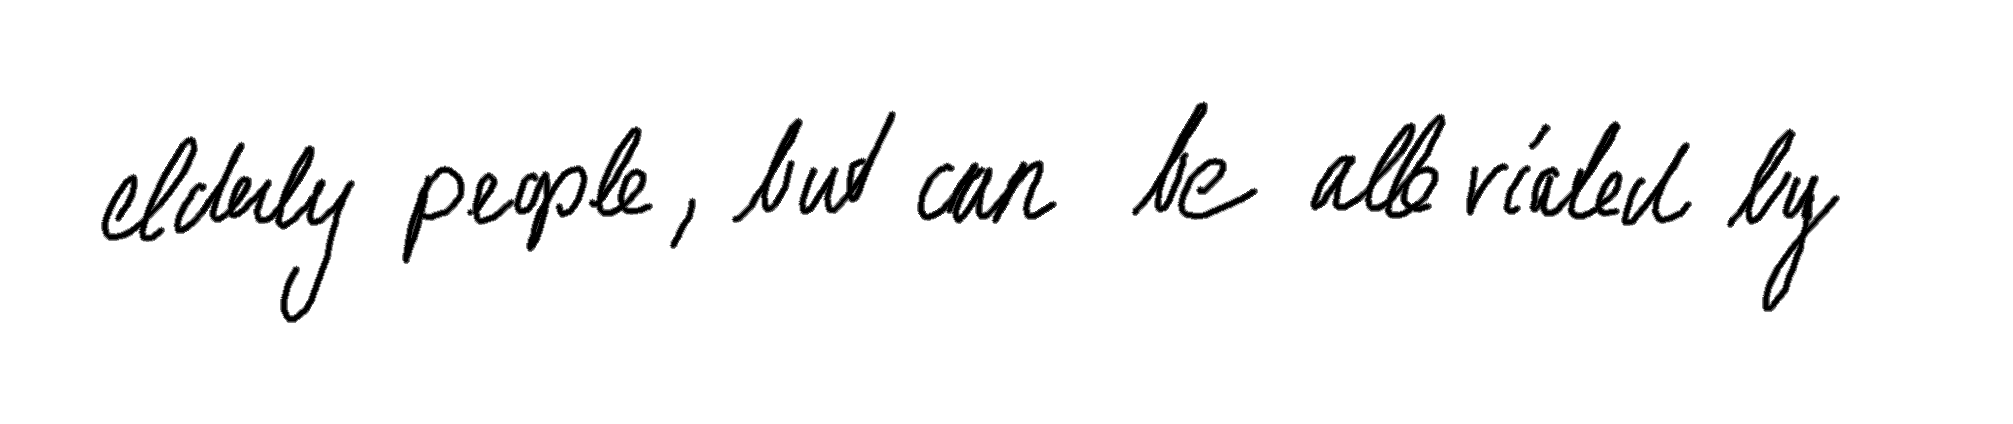 elderly people, but can be alleviated by